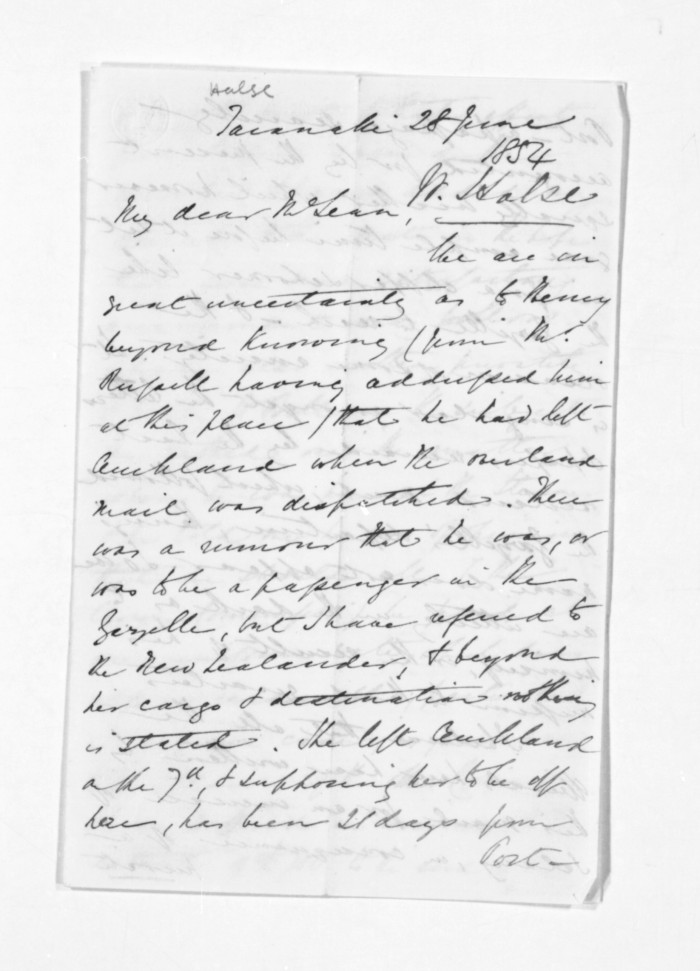 Halse
Taranaki 28 June
1854
W. Halse
My dear McLean,
We are in
great uncertainty as to Henry
beyond knowing (from Mr.
Russell having addressed him
at this place) that he had left
Auckland when the overland
mail was dispatched. There
was a rumour that he was, or
was to be a passenger in the
Gazelle, but I have referred to
the New Zealander, & beyond
her cargo & destination nothing
is stated. She left Auckland
on the 7th, & supposing her to be off
here, has been 21 days from
Port -